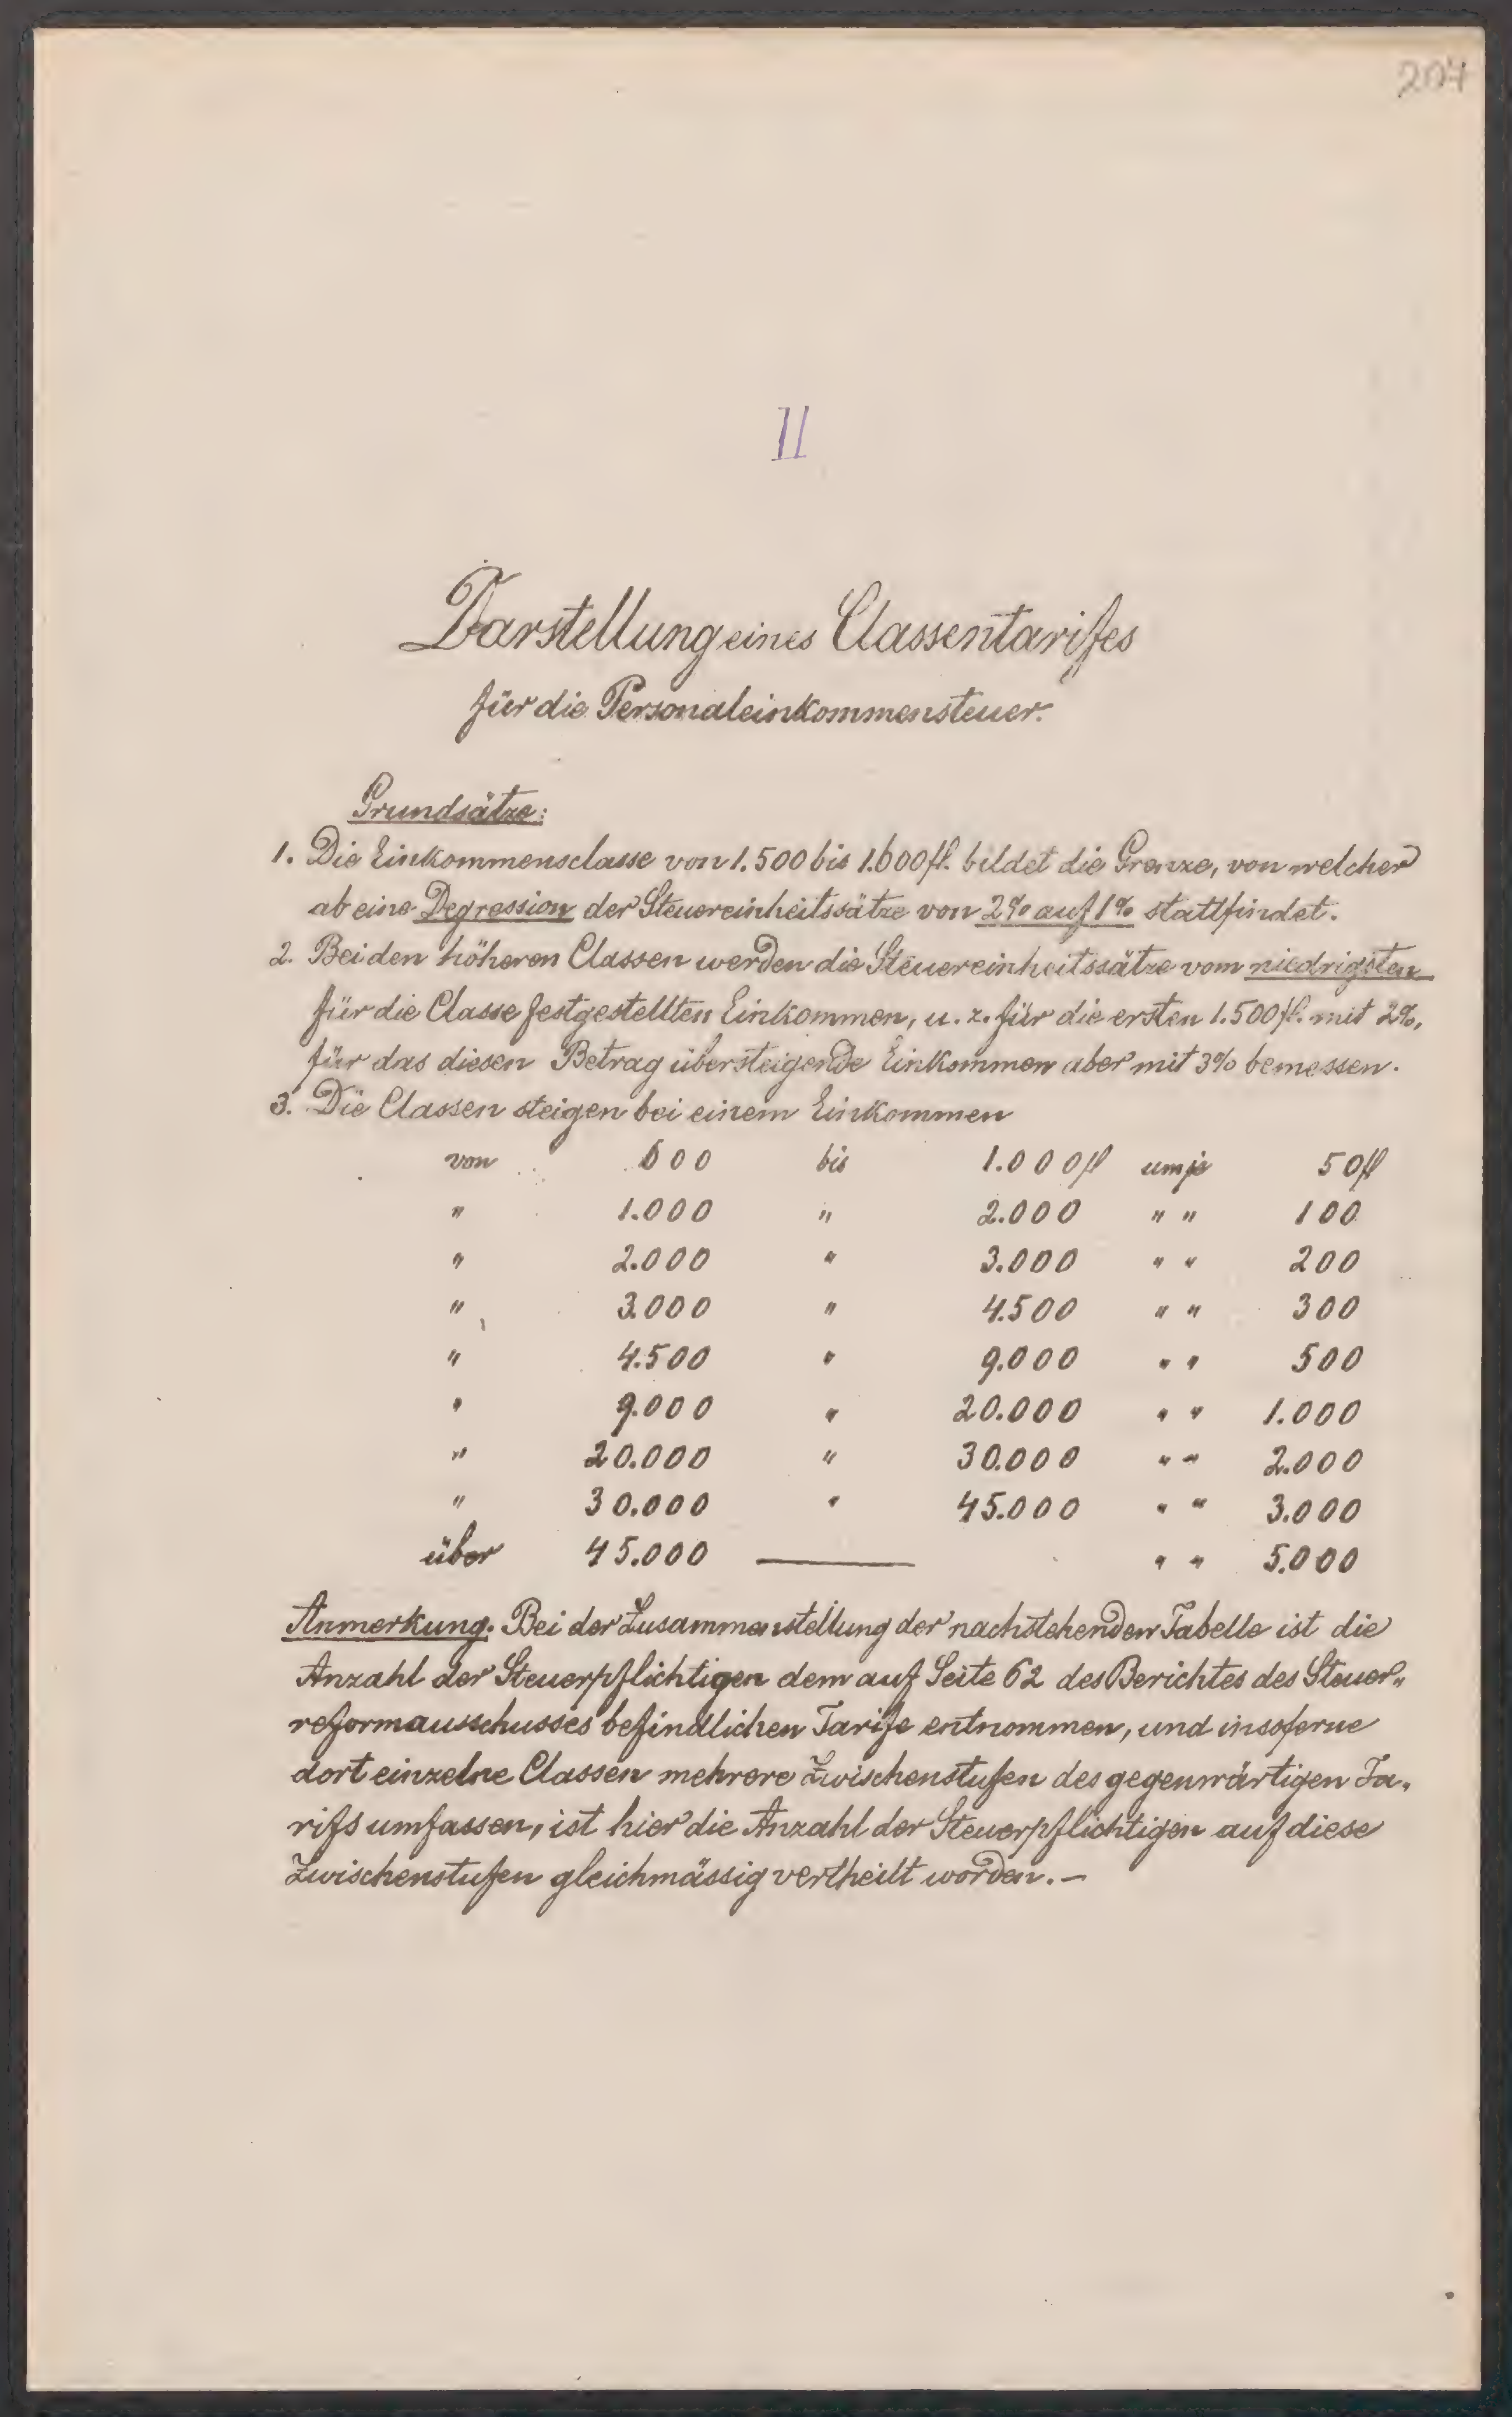 207
II
Darstellung eines Classentarifes
für die Personaleinkommensteuer.
Grundsätze:
1. Die Einkommensclasse von 1.500 bis 1.600 fl. bildet die Grenze, von welcher
ab eine Degression der Steuereinheitssätze von 2% auf 1% stattfindet.
2. Bei den höheren Classen werden die Steuereinheitssätze vom niedrigsten
für die Classe festgestellten Einkommen, u. z. für die ersten 1.500 fl. mit 2%,
für das diesen Betrag übersteigende Einkommen aber mit 3% bemessen.
3. Die Classen steigen bei einem Einkommen
von 600 bis 1.000 fl um je 50 fl
" 1.000 " 2.000 " " 100
" 2.000 " 3.000 " " 200
" 3.000 " 4.500 " " 300
" 4.500 " 9.000 " " 500
" 9.000 " 20.000 " " 1.000
" 20.000 " 30.000 " " 2.000
" 30.000 " 45.000 " " 3.000
über 45.000 — " " 5.000
Anmerkung. Bei der Zusammenstellung der nachstehenden Tabelle ist die
Anzahl der Steuerpflichtigen dem auf Seite 62 des Berichtes des Steuer„
reformausschusses befindlichen Tarife entnommen, und insoferne
dort einzelne Classen mehrere Zwischenstufen des gegenwärtigen Ta„
rifs umfassen, ist hier die Anzahl der Steuerpflichtigen auf diese
Zwischenstufen gleichmässig vertheilt worden. –